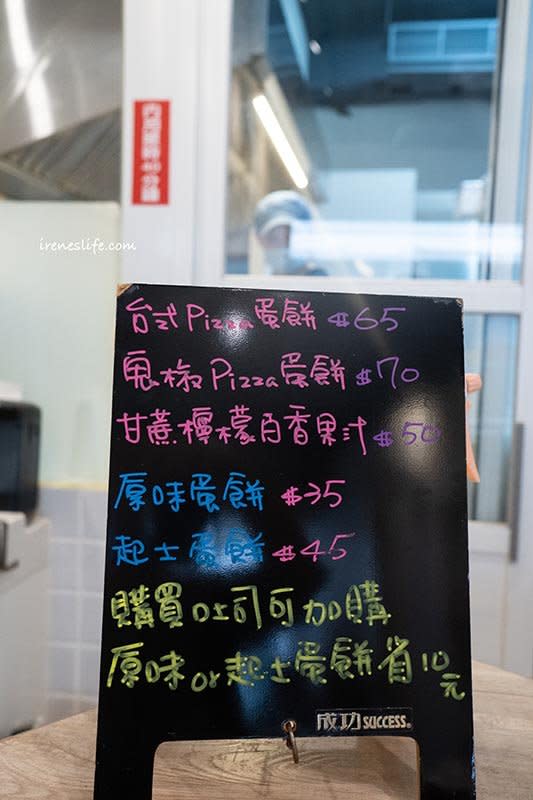 內用限時40分鐘
ireneslife.com
台式Pizza蛋餅 $65
鬼椒Pizza蛋餅 $70
甘蔗檸檬百香果汁 $50
原味蛋餅 $35
起士蛋餅 $45
購買吐司可加購
原味or起士蛋餅省10元
成功 SUCCESS®